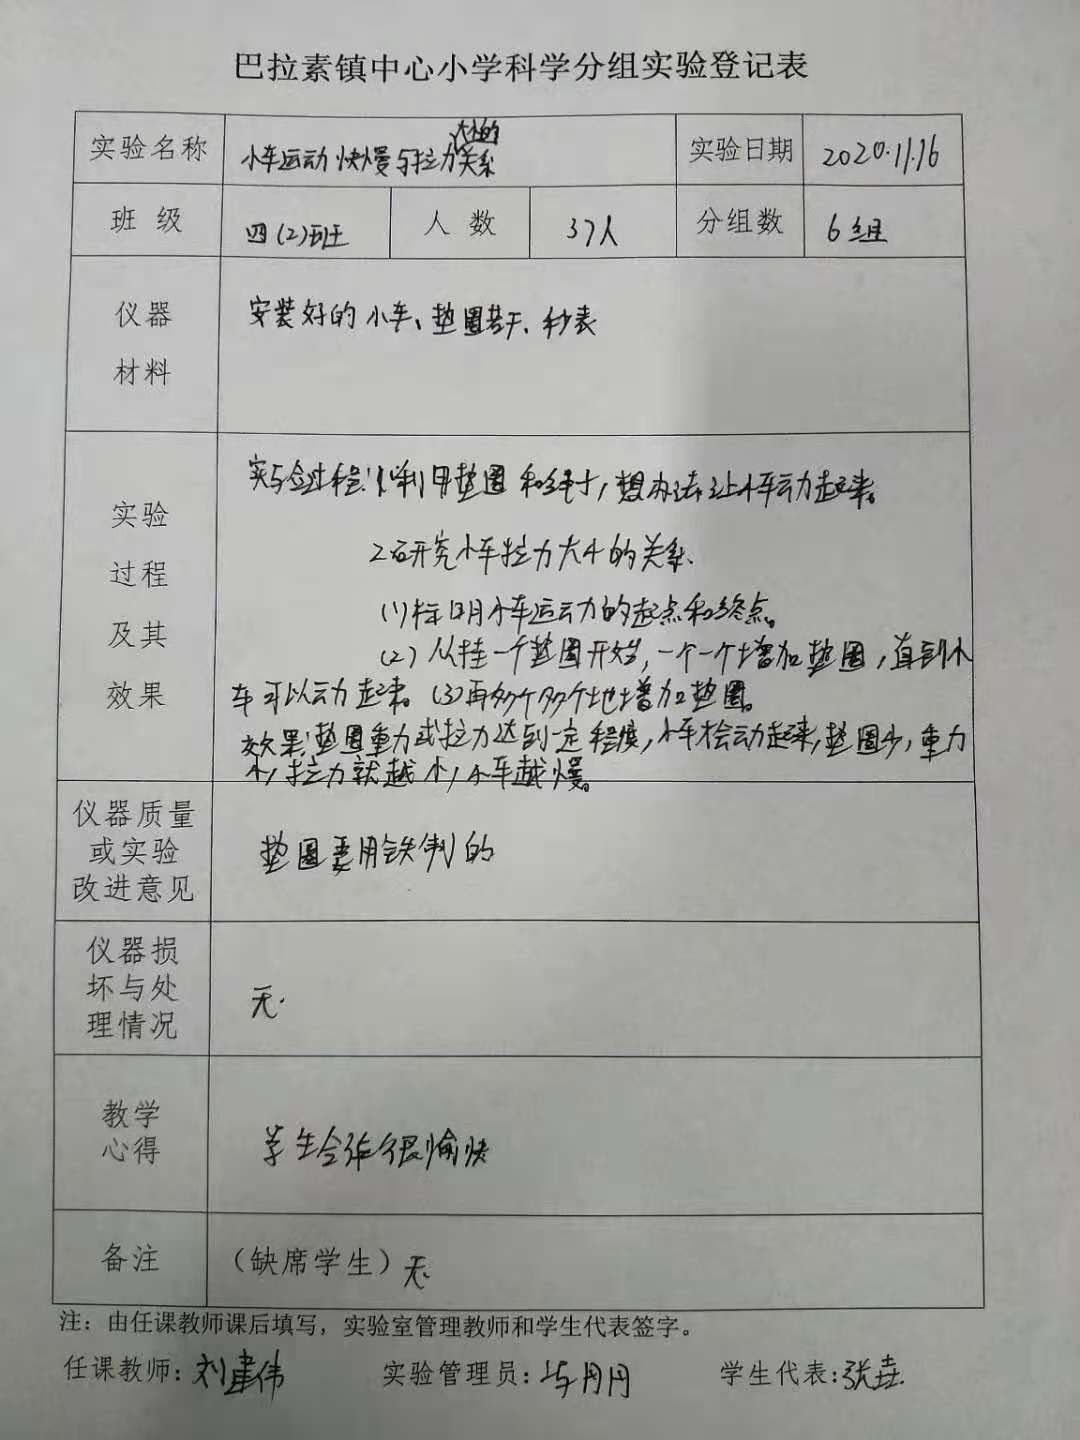 巴拉素镇中心小学科学分组实验登记表
实验名称 小车运动快慢与拉力大小的关系 实验日期 2020.11.16
班 级 四(2)班 人 数 37人 分组数 6组
仪器 安装好的小车、垫圈若干、秒表
材料
实验 实验过程:1、利用垫圈和绳子,想办法让小车动起来。
2研究小车拉力大小的关系.
过程 (1)标明小车运动的起点和终点。
及其 (2)从挂一个垫圈开始,一个一个增加垫圈,直到小
效果 车可以动起来。(3)再多个多个地增加垫圈。
效果:垫圈重力或拉力达到一定程度,小车会动起来,垫圈少,重力
小,拉力就越小,小车越慢。
仪器质量
或实验 垫圈要用铁制的
改进意见
仪器损
坏与处 无.
理情况
教学 学生合作很愉快
心得
备注 (缺席学生)无.
注:由任课教师课后填写,实验室管理教师和学生代表签字。
任课教师:刘建伟 实验管理员: 月月 学生代表:张垚.